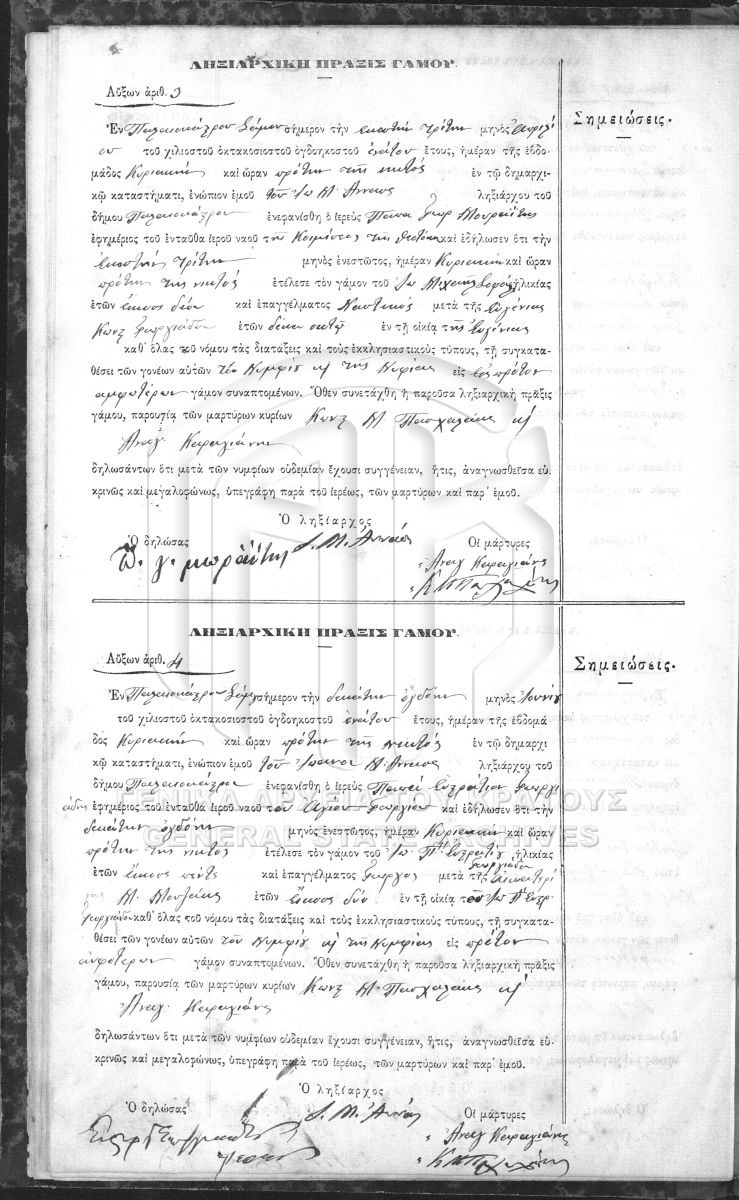 ΛΗΞΙΑΡΧΙΚΗ ΠΡΑΞΙΣ ΓΑΜΟΥ.
Αὔξων ἀριθ. 3
Σημειώσεις.
Ἐν Παλαιοκάστρου Σάμου σήμερον τὴν εἰκοστὴν τρίτην μηνὸς Ἀπριλί
ου τοῦ χιλιοστοῦ ὀκτακοσιοστοῦ ὀγδοηκοστοῦ ἐνάτου ἔτους, ἡμέραν τῆς ἑβδο-
μάδος Κυριακὴν καὶ ὥραν πρώτην τῆς νυκτός ἐν τῷ δημαρχι-
κῷ καταστήματι, ἐνώπιον ἐμοῦ τοῦ Ἰω Μ. Ἀννεως ληξιάρχου τοῦ
δήμου Παλαιοκάστρου ἐνεφανίσθη ὁ ἱερεὺς Παπα Γεωρ Μουραΐτης
ἐφημέριος τοῦ ἐνταῦθα ἱεροῦ ναοῦ τῆς Κοιμήσεως τῆς Θεοτόκου καὶ ἐδήλωσεν ὅτι τὴν
εἰκοστὴν τρίτην μηνὸς ἐνεστῶτος, ἡμέραν Κυριακὴν καὶ ὥραν
πρώτην τῆς νυκτός ἐτέλεσε τὸν γάμον τοῦ Ἰω Μιχαὴλ ἡλικίας
ἐτῶν εἴκοσι δύο καὶ ἐπαγγέλματος Ναυτικὸς μετὰ τῆς Εὐγένιας
Κωνς Γεωργιάδου ἐτῶν δέκα ὀκτὼ ἐν τῇ οἰκίᾳ τῆς Εὐγένιας
καθ' ὅλας τοῦ νόμου τὰς διατάξεις καὶ τοὺς ἐκκλησιαστικοὺς τύπους, τῇ συγκατα-
θέσει τῶν γονέων αὐτῶν τοῦ Νυμφίου κ τῆς Νυμφίας εἰς πρῶτον
ἀμφοτέρων γάμον συναπτομένων. Ὅθεν συνετάχθη ἡ παροῦσα ληξιαρχικὴ πρᾶξις
γάμου, παρουσίᾳ τῶν μαρτύρων κυρίων Κωνς Μ Πασχαλάκη κ
Ἀναγ. Καραγιάννη
δηλωσάντων ὅτι μετὰ τῶν νυμφίων οὐδεμίαν ἔχουσι συγγένειαν, ἥτις, ἀναγνωσθεῖσα εὐ-
κρινῶς καὶ μεγαλοφώνως, ὑπεγράφη παρὰ τοῦ ἱερέως, τῶν μαρτύρων καὶ παρ' ἐμοῦ.
Ὁ ληξίαρχος
Ὁ δηλώσας Οἱ μάρτυρες
Π. γ. μωραΐτης Ι. Μ. Ἀννεὰς Ἀναγ Καραγιάνης
ΛΗΞΙΑΡΧΙΚΗ ΠΡΑΞΙΣ ΓΑΜΟΥ.
Αὔξων ἀριθ. 4
Σημειώσεις.
Ἐν Παλαιοκάστρου Σάμου σήμερον τὴν δεκάτην ὀγδόην μηνὸς Ἰουνίου
τοῦ χιλιοστοῦ ὀκτακοσιοστοῦ ὀγδοηκοστοῦ ἐνάτου ἔτους, ἡμέραν τῆς ἑβδομά-
δος Κυριακὴν καὶ ὥραν πρώτην τῆς νυκτός ἐν τῷ δημαρχι
κῷ καταστήματι, ἐνώπιον ἐμοῦ τοῦ Ἰωάννου Μ. Ἀννεως ληξιάρχου τοῦ
δήμου Παλαιοκάστρου ἐνεφανίσθη ὁ ἱερεὺς Παπᾶ Εὐστράτιος Γεωργι
άδης ἐφημέριος τοῦ ἐνταῦθα ἱεροῦ ναοῦ τοῦ Ἁγίου Γεωργίου καὶ ἐδήλωσεν ὅτι τὴν
δεκάτην ὀγδόην μηνὸς ἐνεστῶτος, ἡμέραν Κυριακὴν καὶ ὥραν
πρώτην τῆς νυκτός ἐτέλεσε τὸν γάμον τοῦ Ἰω Π Εὐστρατίου ἡλικίας
Γεωργιάδου
ἐτῶν εἴκοσι πέντε καὶ ἐπαγγέλματος Γεωργὸς μετὰ τῆς Αἰκατερί
νης Μ. ἐτῶν εἴκοσι δύο ἐν τῇ οἰκίᾳ τοῦ Ἰω Π Εὐστρ
Γεωργιάδου καθ' ὅλας τοῦ νόμου τὰς διατάξεις καὶ τοὺς ἐκκλησιαστικοὺς τύπους, τῇ συγκατα-
θέσει τῶν γονέων αὐτῶν τοῦ Νυμφίου κ τῆς Νυμφίας εἰς πρῶτον
ἀμφοτέρων γάμον συναπτομένων. Ὅθεν συνετάχθη ἡ παροῦσα ληξιαρχικὴ πρᾶξις
γάμου, παρουσίᾳ τῶν μαρτύρων κυρίων Κωνς Μ. Πασχαλάκης κ
Ἀναγ. Καραγιάνης
δηλωσάντων ὅτι μετὰ τῶν νυμφίων οὐδεμίαν ἔχουσι συγγένειαν, ἥτις, ἀναγνωσθεῖσα εὐ-
κρινῶς καὶ μεγαλοφώνως, ὑπεγράφη παρὰ τοῦ ἱερέως, τῶν μαρτύρων καὶ παρ' ἐμοῦ.
Ὁ ληξίαρχος
Ὁ δηλώσας Οἱ μάρτυρες
Ι. Μ. Ἀννεὰς Ἀναγ Καραγιάνης
ΓΕΝΙΚΑ ΑΡΧΕΙΑ ΤΟΥ ΚΡΑΤΟΥΣ
GENERAL STATE ARCHIVES